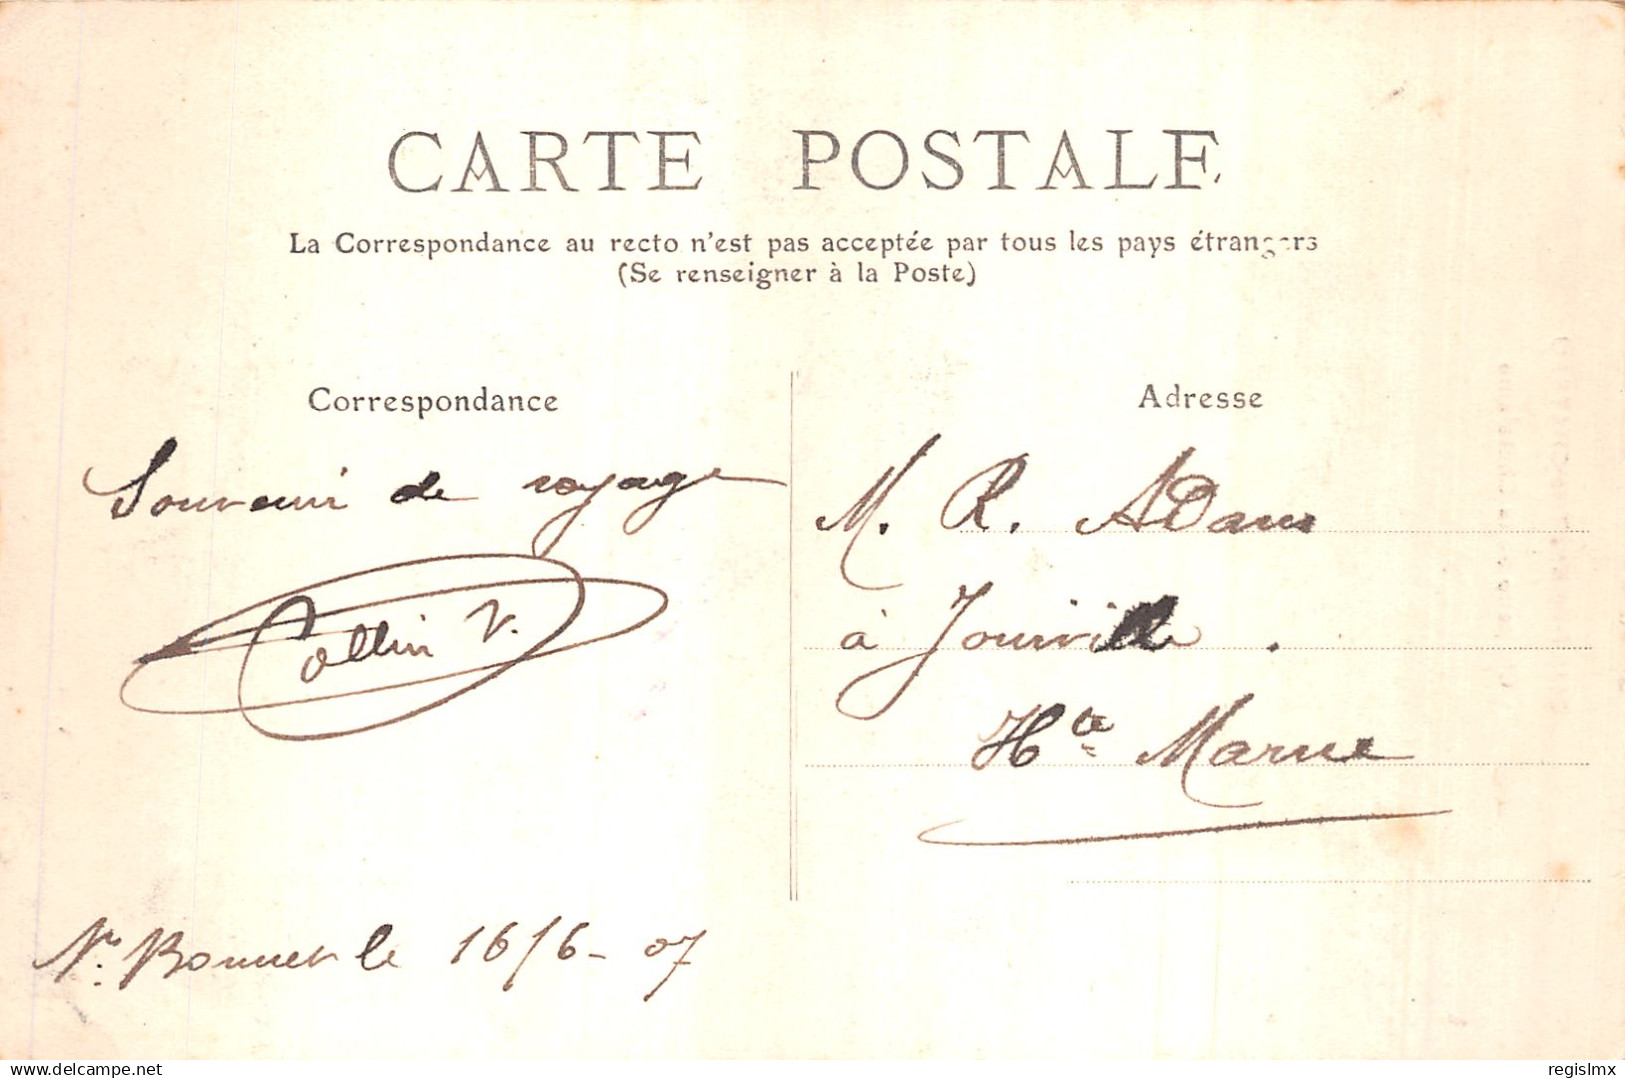 CARTE POSTALE
La Correspondance au recto n'est pas acceptée par tous les pays étrangers
(Se renseigner à la Poste)
Correspondance
Souvenir de voyage
Collin V.
le 16/6-07
Adresse
M. R. Adam
à Joinville.
Hte Marne
delcampe.net
regislmx